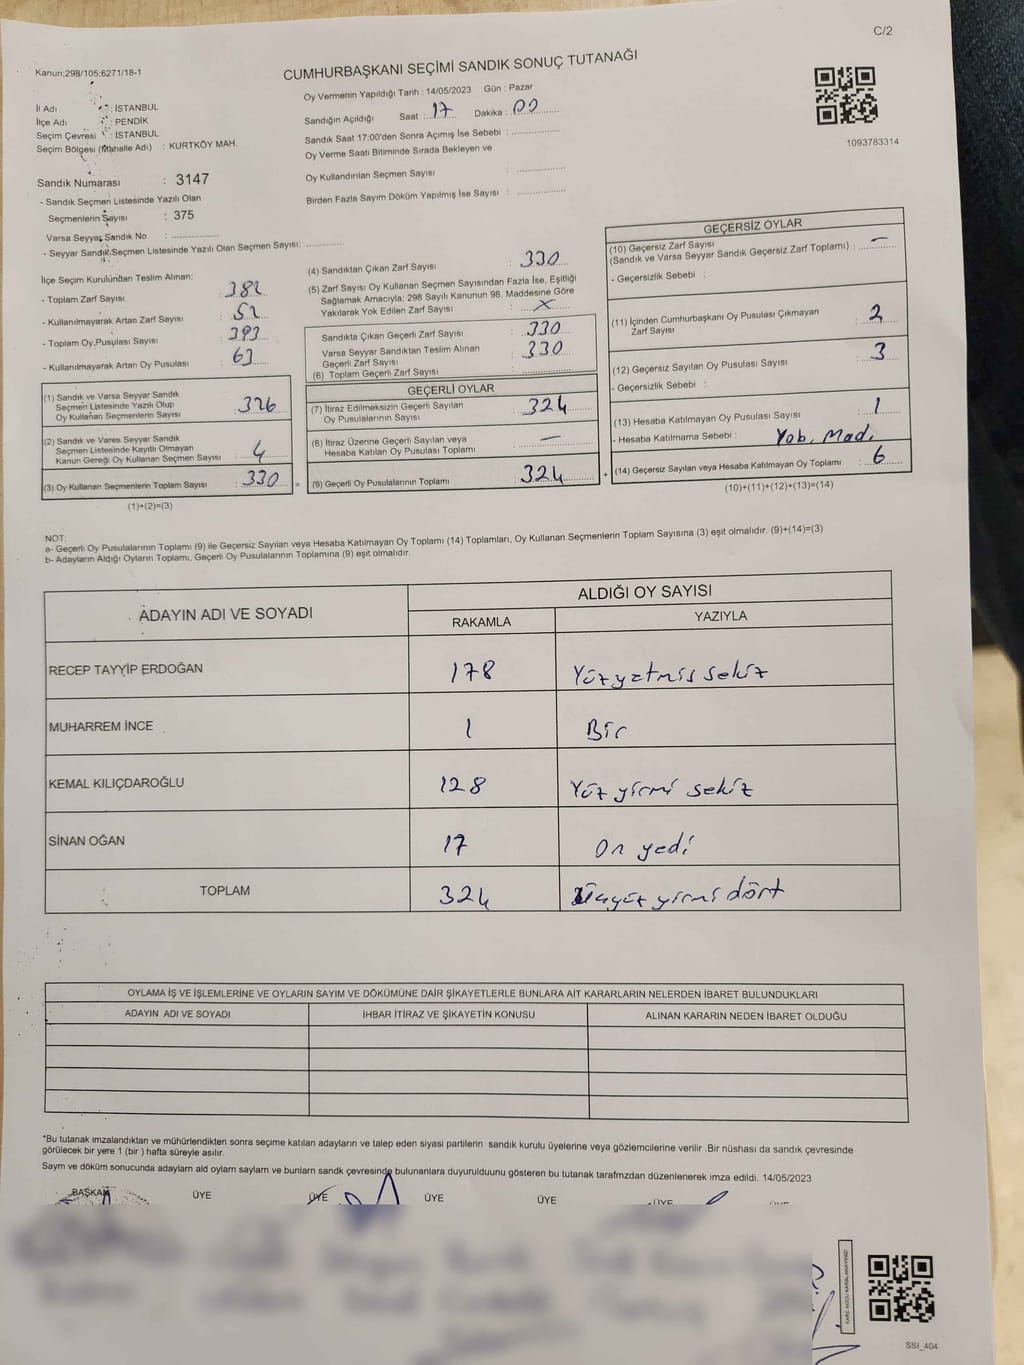 C/2
Kanun:298/105;6271/18-1
CUMHURBAŞKANI SEÇİMİ SANDIK SONUÇ TUTANAĞI
İl Adı : İSTANBUL
İlçe Adı : PENDİK
Seçim Çevresi : İSTANBUL
Seçim Bölgesi (Mahalle Adı) : KURTKÖY MAH.
Sandık Numarası : 3147
- Sandık Seçmen Listesinde Yazılı Olan
Seçmenlerin Sayısı : 375
Varsa Seyyar Sandık No :
- Seyyar Sandık Seçmen Listesinde Yazılı Olan Seçmen Sayısı:
Oy Vermenin Yapıldığı Tarih : 14/05/2023 Gün : Pazar
Sandığın Açıldığı Saat : 17 Dakika : 00
Sandık Saat 17:00'den Sonra Açımış İse Sebebi :
Oy Verme Saati Bitiminde Sırada Bekleyen ve
Oy Kullandırılan Seçmen Sayısı :
Birden Fazla Sayım Döküm Yapılmış İse Sayısı :
1093783314
İlçe Seçim Kurulundan Teslim Alınan:
- Toplam Zarf Sayısı : 382
- Kullanılmayarak Artan Zarf Sayısı : 52
- Toplam Oy Pusulası Sayısı : 393
- Kullanılmayarak Artan Oy Pusulası : 63
(1) Sandık ve Varsa Seyyar Sandık
Seçmen Listesinde Yazılı Olup
Oy Kullanan Seçmenlerin Sayısı : 326
(2) Sandık ve Varsa Seyyar Sandık
Seçmen Listesinde Kayıtlı Olmayan
Kanun Gereği Oy Kullanan Seçmen Sayısı : 4
(3) Oy Kullanan Seçmenlerin Toplam Sayısı : 330
(1)+(2)=(3)
(4) Sandıktan Çıkan Zarf Sayısı : 330
(5) Zarf Sayısı Oy Kullanan Seçmen Sayısından Fazla İse, Eşitliği
Sağlamak Amacıyla; 298 Sayılı Kanunun 98. Maddesine Göre
Yakılarak Yok Edilen Zarf Sayısı : X
Sandıkta Çıkan Geçerli Zarf Sayısı : 330
Varsa Seyyar Sandıktan Teslim Alınan
Geçerli Zarf Sayısı : 330
(6) Toplam Geçerli Zarf Sayısı :
GEÇERLİ OYLAR
(7) İtiraz Edilmeksizin Geçerli Sayılan
Oy Pusulalarının Sayısı : 324
(8) İtiraz Üzerine Geçerli Sayılan veya
Hesaba Katılan Oy Pusulası Toplamı : —
(9) Geçerli Oy Pusulalarının Toplamı : 324
GEÇERSİZ OYLAR
(10) Geçersiz Zarf Sayısı
(Sandık ve Varsa Seyyar Sandık Geçersiz Zarf Toplamı) : —
- Geçersizlik Sebebi :
(11) İçinden Cumhurbaşkanı Oy Pusulası Çıkmayan
Zarf Sayısı : 2
(12) Geçersiz Sayılan Oy Pusulası Sayısı : 3
- Geçersizlik Sebebi :
(13) Hesaba Katılmayan Oy Pusulası Sayısı : 1
- Hesaba Katılmama Sebebi : Yab. Mad.
(14) Geçersiz Sayılan veya Hesaba Katılmayan Oy Toplamı : 6
(10)+(11)+(12)+(13)=(14)
NOT:
a- Geçerli Oy Pusulalarının Toplamı (9) ile Geçersiz Sayılan veya Hesaba Katılmayan Oy Toplamı (14) Toplamları, Oy Kullanan Seçmenlerin Toplam Sayısına (3) eşit olmalıdır. (9)+(14)=(3)
b- Adayların Aldığı Oyların Toplamı, Geçerli Oy Pusulalarının Toplamına (9) eşit olmalıdır.
ADAYIN ADI VE SOYADI
ALDIĞI OY SAYISI
RAKAMLA YAZIYLA
RECEP TAYYİP ERDOĞAN 178 Yüz yetmiş sekiz
MUHARREM İNCE 1 Bir
KEMAL KILIÇDAROĞLU 128 Yüz yirmi sekiz
SİNAN OĞAN 17 On yedi
TOPLAM 324 Üçyüz yirmi dört
OYLAMA İŞ VE İŞLEMLERİNE VE OYLARIN SAYIM VE DÖKÜMÜNE DAİR ŞİKAYETLERLE BUNLARA AİT KARARLARIN NELERDEN İBARET BULUNDUKLARI
ADAYIN ADI VE SOYADI İHBAR İTİRAZ VE ŞİKAYETİN KONUSU ALINAN KARARIN NEDEN İBARET OLDUĞU
*Bu tutanak imzalandıktan ve mühürlendikten sonra seçime katılan adayların ve talep eden siyasi partilerin sandık kurulu üyelerine veya gözlemcilerine verilir .Bir nüshası da sandık çevresinde
görülecek bir yere 1 (bir ) hafta süreyle asılır.
Sayım ve döküm sonucunda adayların ald oyların sayların ve bunların sandk çevresinde bulunanlara duyurulduunu gösteren bu tutanak tarafmzdan düzenlenerek imza edildi. 14/05/2023
BAŞKAN ÜYE ÜYE ÜYE ÜYE ÜYE
KARE KODU KARALAMAYINIZ!
SSI_404